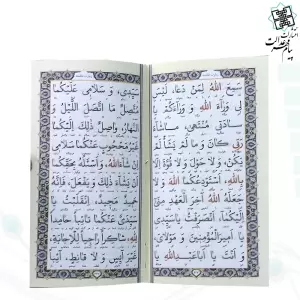 سَمِعَ اللهُ لِمَنْ دَعَا، لَيْسَ
لِي وَرَآءَ اللهِ وَ وَرَآءَكُمْ يَا
سَادَتِي مُنْتَهىٰ، مَاشَآءَ
رَبِّي كَانَ وَ مَا لَمْ يَشَأْ لَمْ
يَكُنْ، وَ لَا حَوْلَ وَ لَا قُوَّةَ اِلَّا
بِاللهِ، اَسْتَوْدِعُكُمَا اللهَ وَ لَا
جَعَلَهُ اللهُ آخِرَ الْعَهْدِ مِنِّي
اِلَيْكُمَا، اِنْصَرَفْتُ يَا سَيِّدِي
يَا اَمِيرَ الْمُؤْمِنِينَ وَ مَوْلَايَ،
وَ اَنْتَ يَا اَبَا عَبْدِ اللهِ يَا
سَيِّدِي، وَ سَلَامِي عَلَيْكُمَا
مُتَّصِلٌ مَا اتَّصَلَ اللَّيْلُ وَ
النَّهَارُ، وَاصِلٌ ذٰلِكَ اِلَيْكُمَا
غَيْرُ مَحْجُوبٍ عَنْكُمَا سَلَامِي
اِنْ شَآءَ اللهُ، وَ اَسْئَلُهُ بِحَقِّكُمَا
اَنْ يَشَآءَ ذٰلِكَ وَ يَفْعَلَ، فَاِنَّهُ
حَمِيدٌ مَجِيدٌ، اِنْقَلَبْتُ يَا
سَيِّدَيَّ عَنْكُمَا تَآئِباً حَامِداً
لِلّٰهِ، شَاكِراً رَاجِياً لِلْاِجَابَةِ،
غَيْرَ آيِسٍ وَ لَا قَانِطٍ، آئِباً